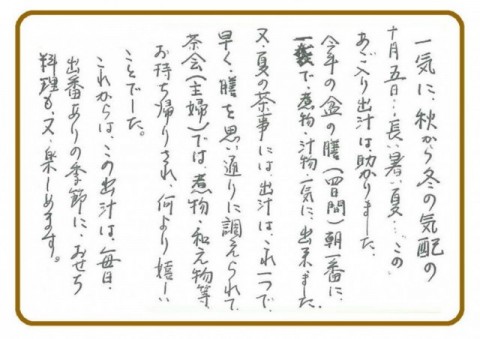 一気に、秋から冬の気配の
十月五日…長い暑い夏…この
あご入り出汁は、助かりました。
今年の盆の膳(四日間)朝一番に、
で、煮物・汁物一気に、出来ました。
又・夏の茶事には、出汁は、これ一つで、
早く、膳を思い通りに調えられて
茶会(主婦)では、煮物・和え物等
お持ち帰りされ、何より嬉しい
ことでした。
これからは、この出汁は、毎日、
出番ありの季節に、おせち
料理も、又・楽しめます。